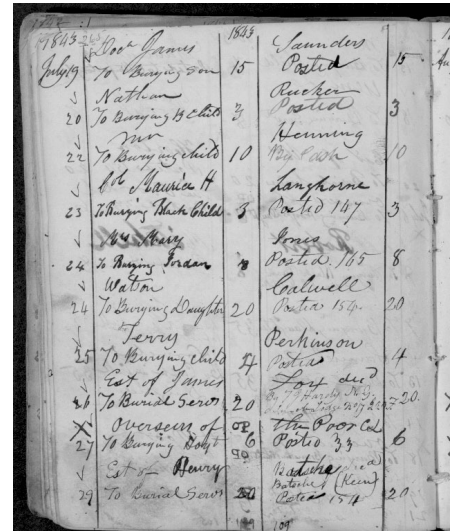 1843 1843
Docr James Saunders
July 19 To Burying Son 15 Posted 15
Nathan Rucker
20 To Burying B Child 3 Posted 3
Mr Henning
22 To Burying child 10 By Cash 10
Col Maurice H Langhorne
23 To Burying Black Child 3 Posted 147 3
Mrs Mary Jones
24 To Burying Jordan 8 Posted 165 8
Watson Calwell
24 To Burying Daughter 20 Posted 154 20
Terry Perkinson
25 To Burying child 4 Posted 4
Est of James Fox decd
26 To Burial Servs 20 20
X Overseers of The Poor
27 To Burying 6 Posted 33 6
Est of Henry
Batsche (Keen)
29 To Burial Servs 20 Posted 154 20
109